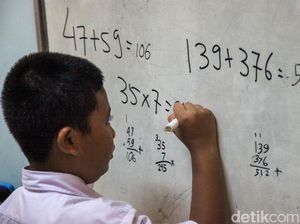 47+59=106
139+376=5
35×7=
1
47
59 +
106
3
35
7 ×
245
11
139
376 +
512
detikcom